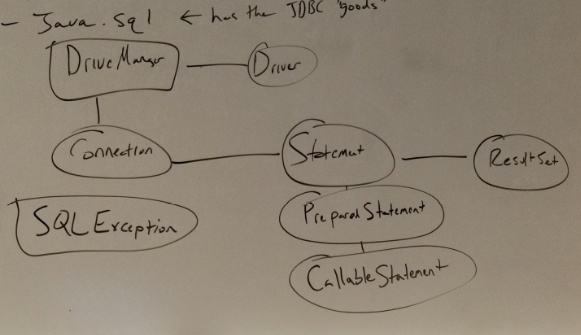 - Java.sql ← has the JDBC "goods"
DriveManager
Driver
Connection
Statement
ResultSet
SQLException
PreparedStatement
CallableStatement